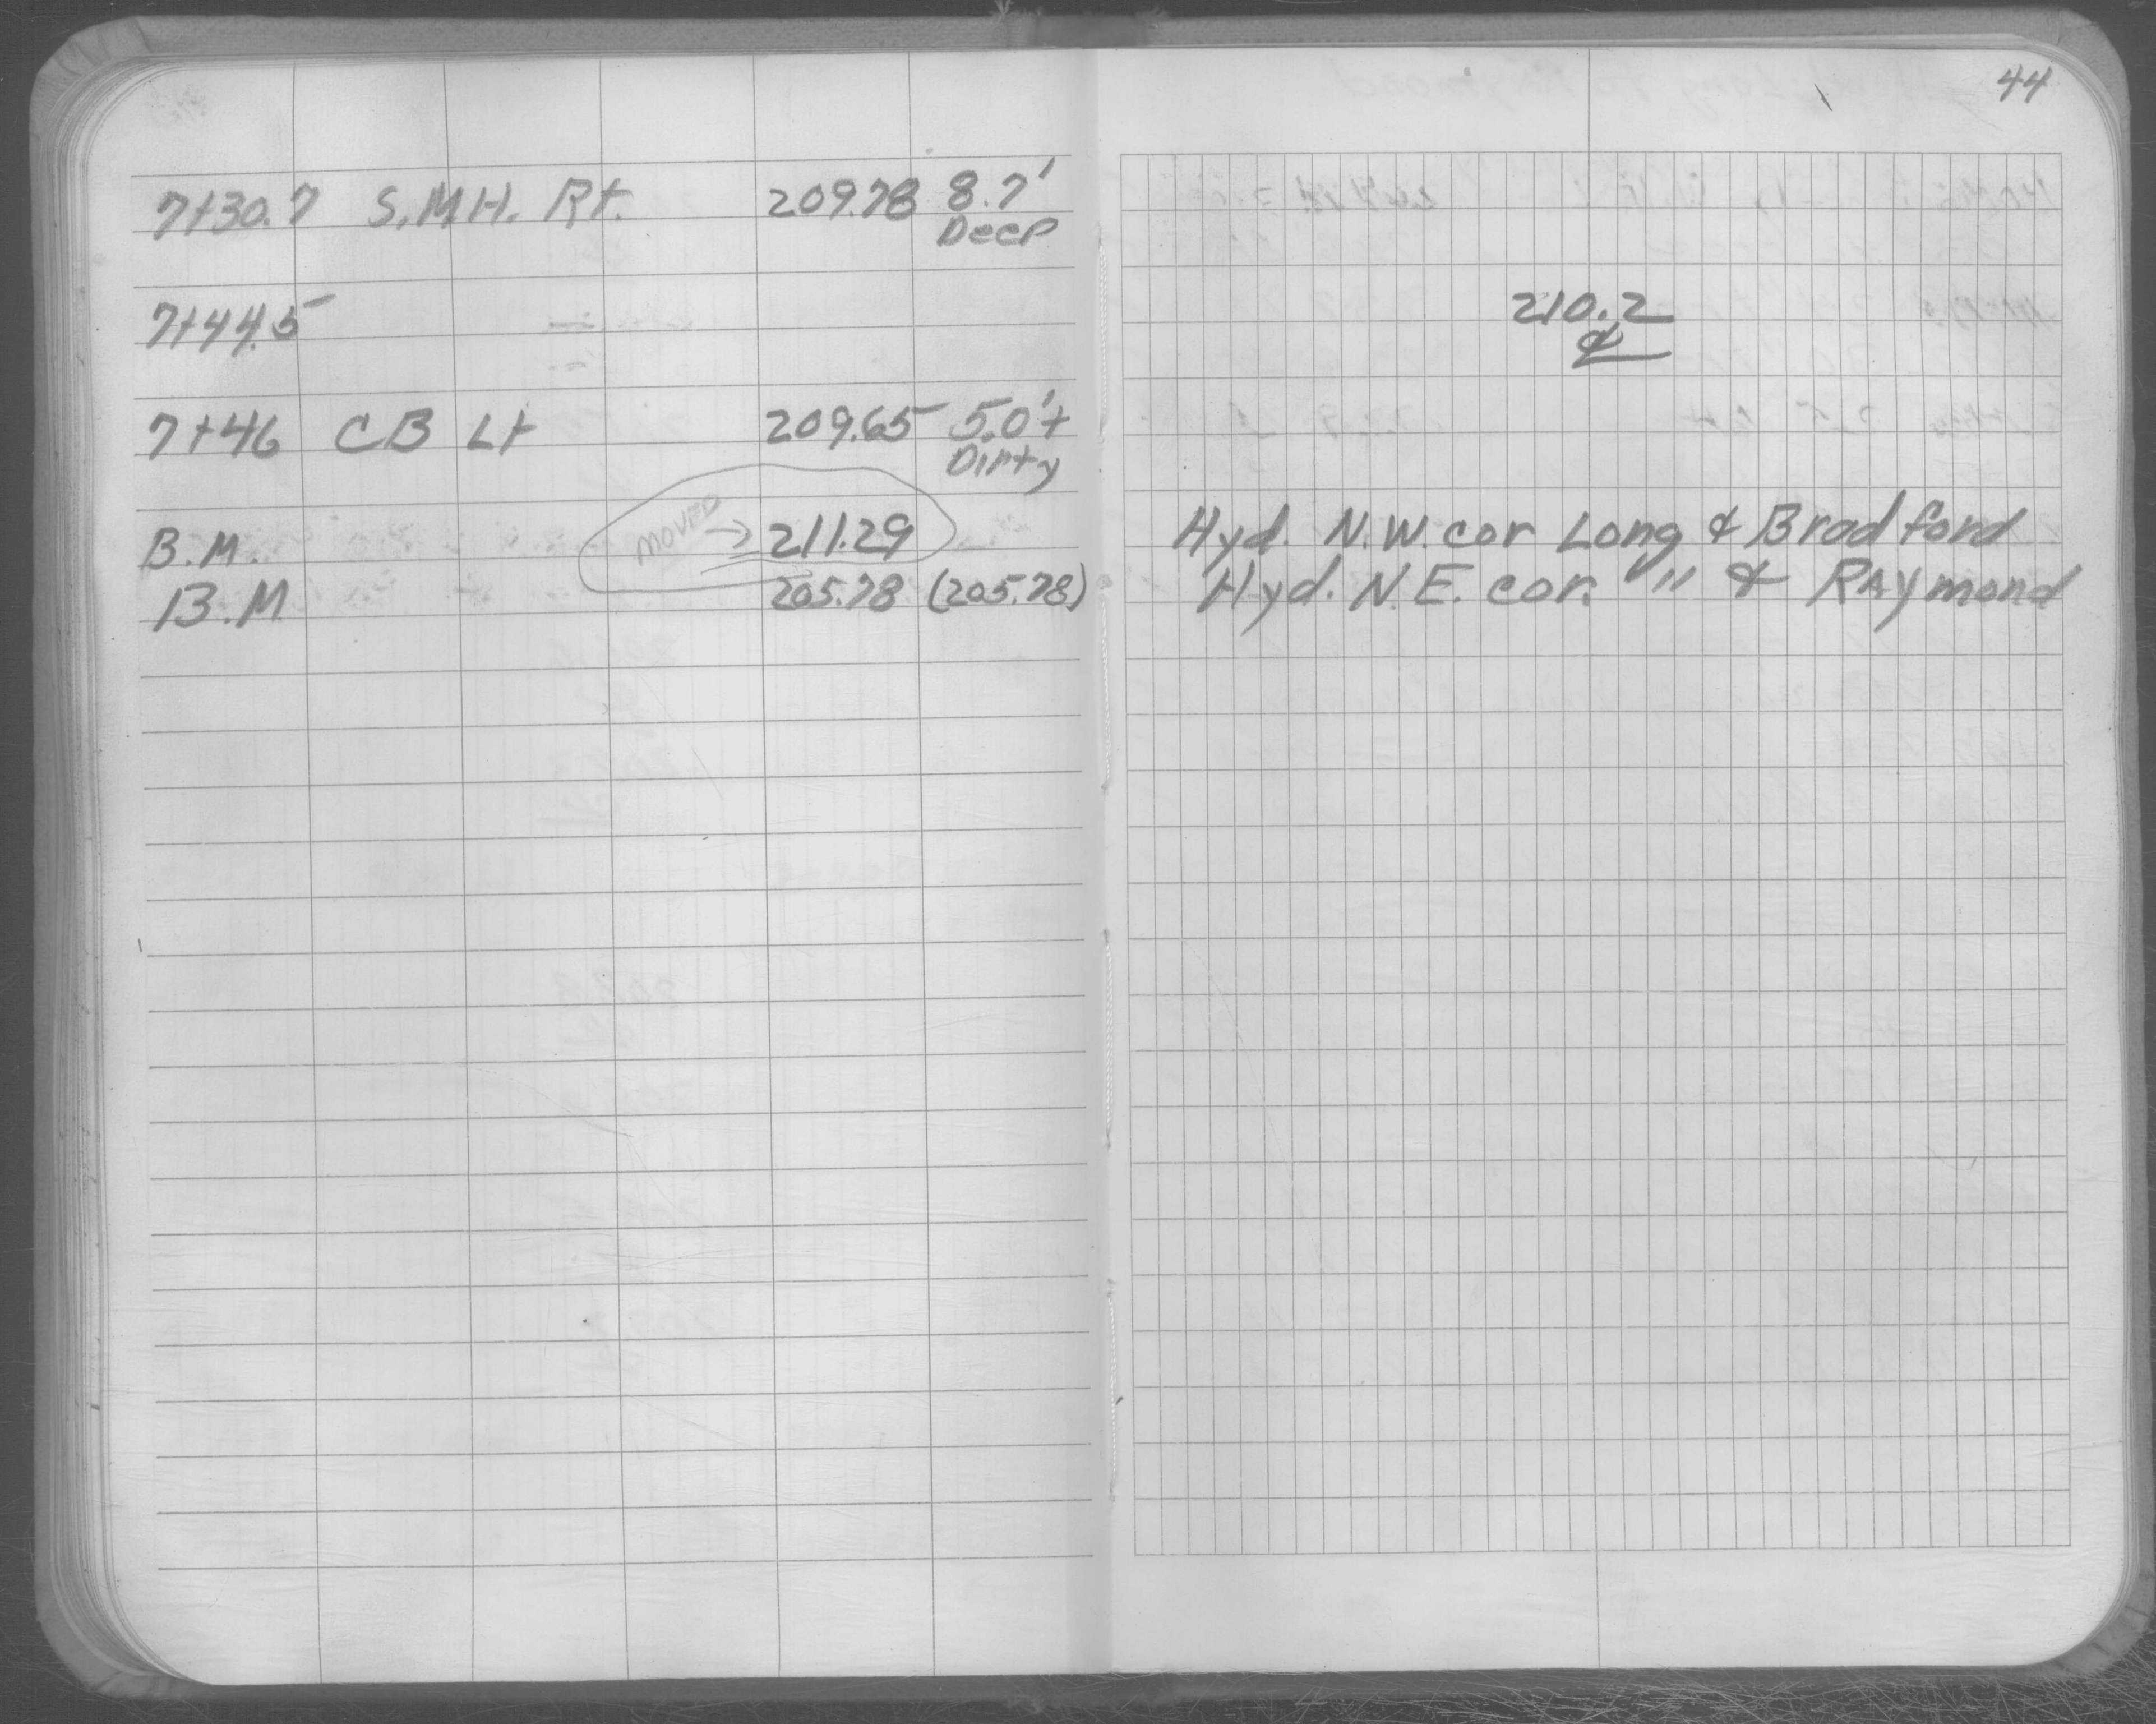 44
7+30.7 S.M.H. Rt. 209.78 8.7'
Deep
7+44.5 210.2
℄
7+46 CB Lt 209.65 5.0'+
Dirty
B.M. MOVED → 211.29 Hyd. N.W. cor Long & Bradford
B.M 205.78 (205.78) Hyd. N.E. cor. " & RAymond